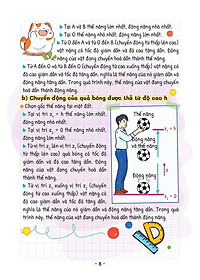 • Tại A và B thế năng lớn nhất, động năng nhỏ nhất.
• Tại O thế năng nhỏ nhất, động năng lớn nhất.
• Từ O đến A và từ O đến B (chuyển động từ thấp lên cao)
vật năng có tốc độ giảm dần và có độ cao tăng dần.
Động năng của vật đang chuyển hoá dần thành thế năng.
• Từ A đến O và từ B đến O (chuyển động từ cao xuống thấp) vật nặng có
độ cao giảm dần và tốc độ tăng dần, nghĩa là thế năng của nó giảm dần và
động năng tăng dần. Trong quá trình này, thế năng của vật đang chuyển
hoá dần thành động năng.
b) Chuyển động của quả bóng được thả từ độ cao h
• Chọn gốc thế năng tại mặt đất.
• Tại vị trí z₁ = h thế năng lớn nhất,
động năng nhỏ nhất.
• Tại vị trí z₃ = 0 thế năng nhỏ nhất,
động năng lớn nhất.
• Từ vị trí z₃ lên vị trí z₁ (chuyển động
từ thấp lên cao) quả bóng có tốc độ
giảm dần và độ cao tăng dần. Động
năng của vật đang chuyển hoá dần
thành thế năng.
• Từ vị trí z₁ xuống vị trí z₃ (chuyển động
từ cao xuống thấp) vật nặng có độ cao
giảm dần và tốc độ tăng dần, nghĩa là
thế năng của nó giảm dần và động năng tăng dần. Trong quá
trình này, thế năng của vật đang chuyển hoá dần thành động năng.
Thế năng
z₁ = h
Động năng
và thế năng
z₂
Động năng
z₃ = 0
- 8 -